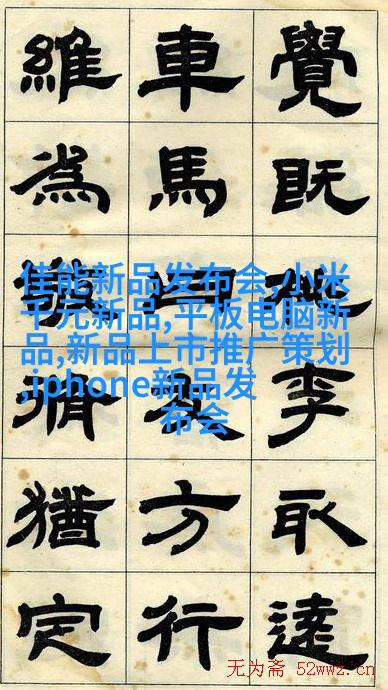 覺既李取達
車馬方行
維為猶定
佳能新品发布会,小米
千元新品,平板电脑新
品,新品上市推广策划
,iphone新品发
布会
无为斋 52wwz.cn